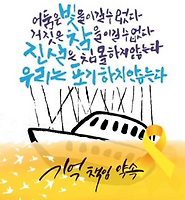 어둠은 빛을 이길 수 없다
거짓은 참을 이길 수 없다
진실은 침몰하지 않는다
우리는 포기하지 않는다
기억 책임 약속